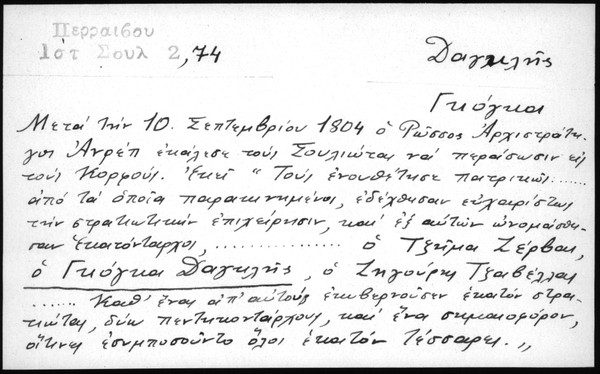 Περραιβου
Ιστ Σουλ 2, 74
Δαγκλής
Γκόγκας
Μετά τήν 10. Σεπτεμβρίου 1804 ὁ Ρῶσσος Ἀρχιστράτη-
γος Ἀνρέπ ἐκάλεσε τούς Σουλιώτας νά περάσωσιν εἰς
τούς Κορφούς. Ἐκεῖ " Τούς ἐνουθέτησε πατρικῶς......
ἀπό τά ὁποῖα παρακινημένοι, ἐδέχθησαν εὐχαρίστως
τήν στρατιωτικήν ἐπιχείρησιν, καί ἐξ αὐτῶν ὠνομάσθη-
σαν Ἑκατόνταρχοι, ............... ὁ Τζήμα Ζέρβας,
ὁ Γκόγκας Δαγκλῆς, ὁ Ζηγούρης Τζαβέλλας
....... Καθ' ἕνας ἀπ' αὐτούς ἐκυβερνοῦσεν ἑκατόν στρα-
τιώτας, δύω πεντηκοντάρχους, καί ἕνα σημαιοφόρον,
οἵτινες ἐσυμποσοῦντο ὅλοι ἑκατόν τέσσαρες. ,,